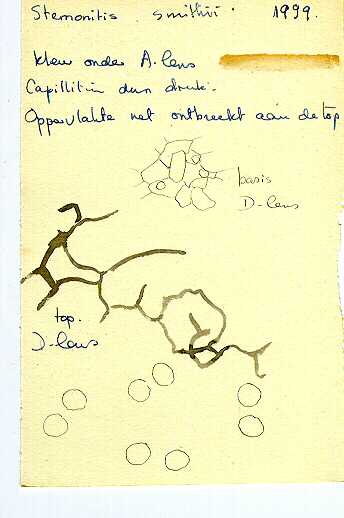 Stemonitis smithii 1999.
kleur onder A. lens
Capillitium dun druk.
Oppervlakte net ontbreekt aan de top
basis
D-lens
top.
D-lens